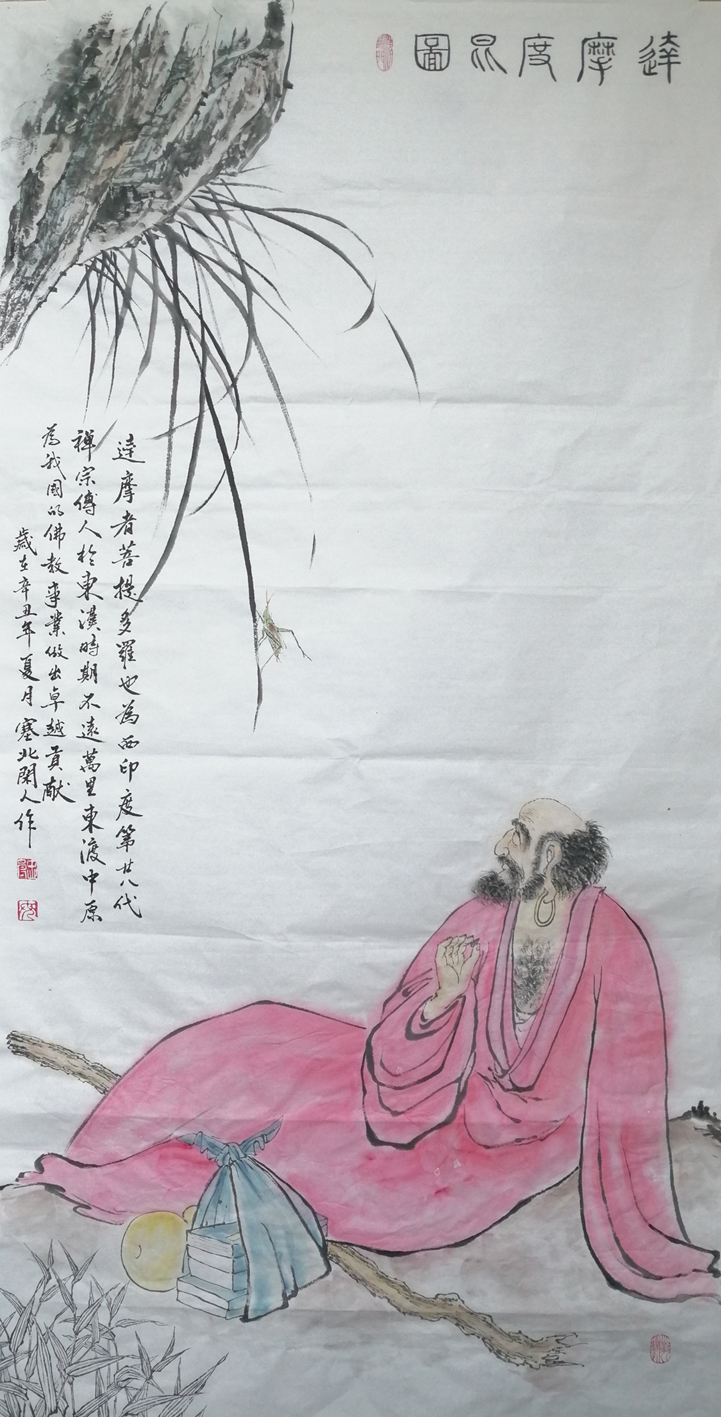 達摩度昆圖
達摩者菩提多羅也為西印度第廿八代
禪宗傳人於東漢時期不遠萬里東渡中原
為我國的佛教事業做出卓越貢献
歲在辛丑年夏月塞北閑人作